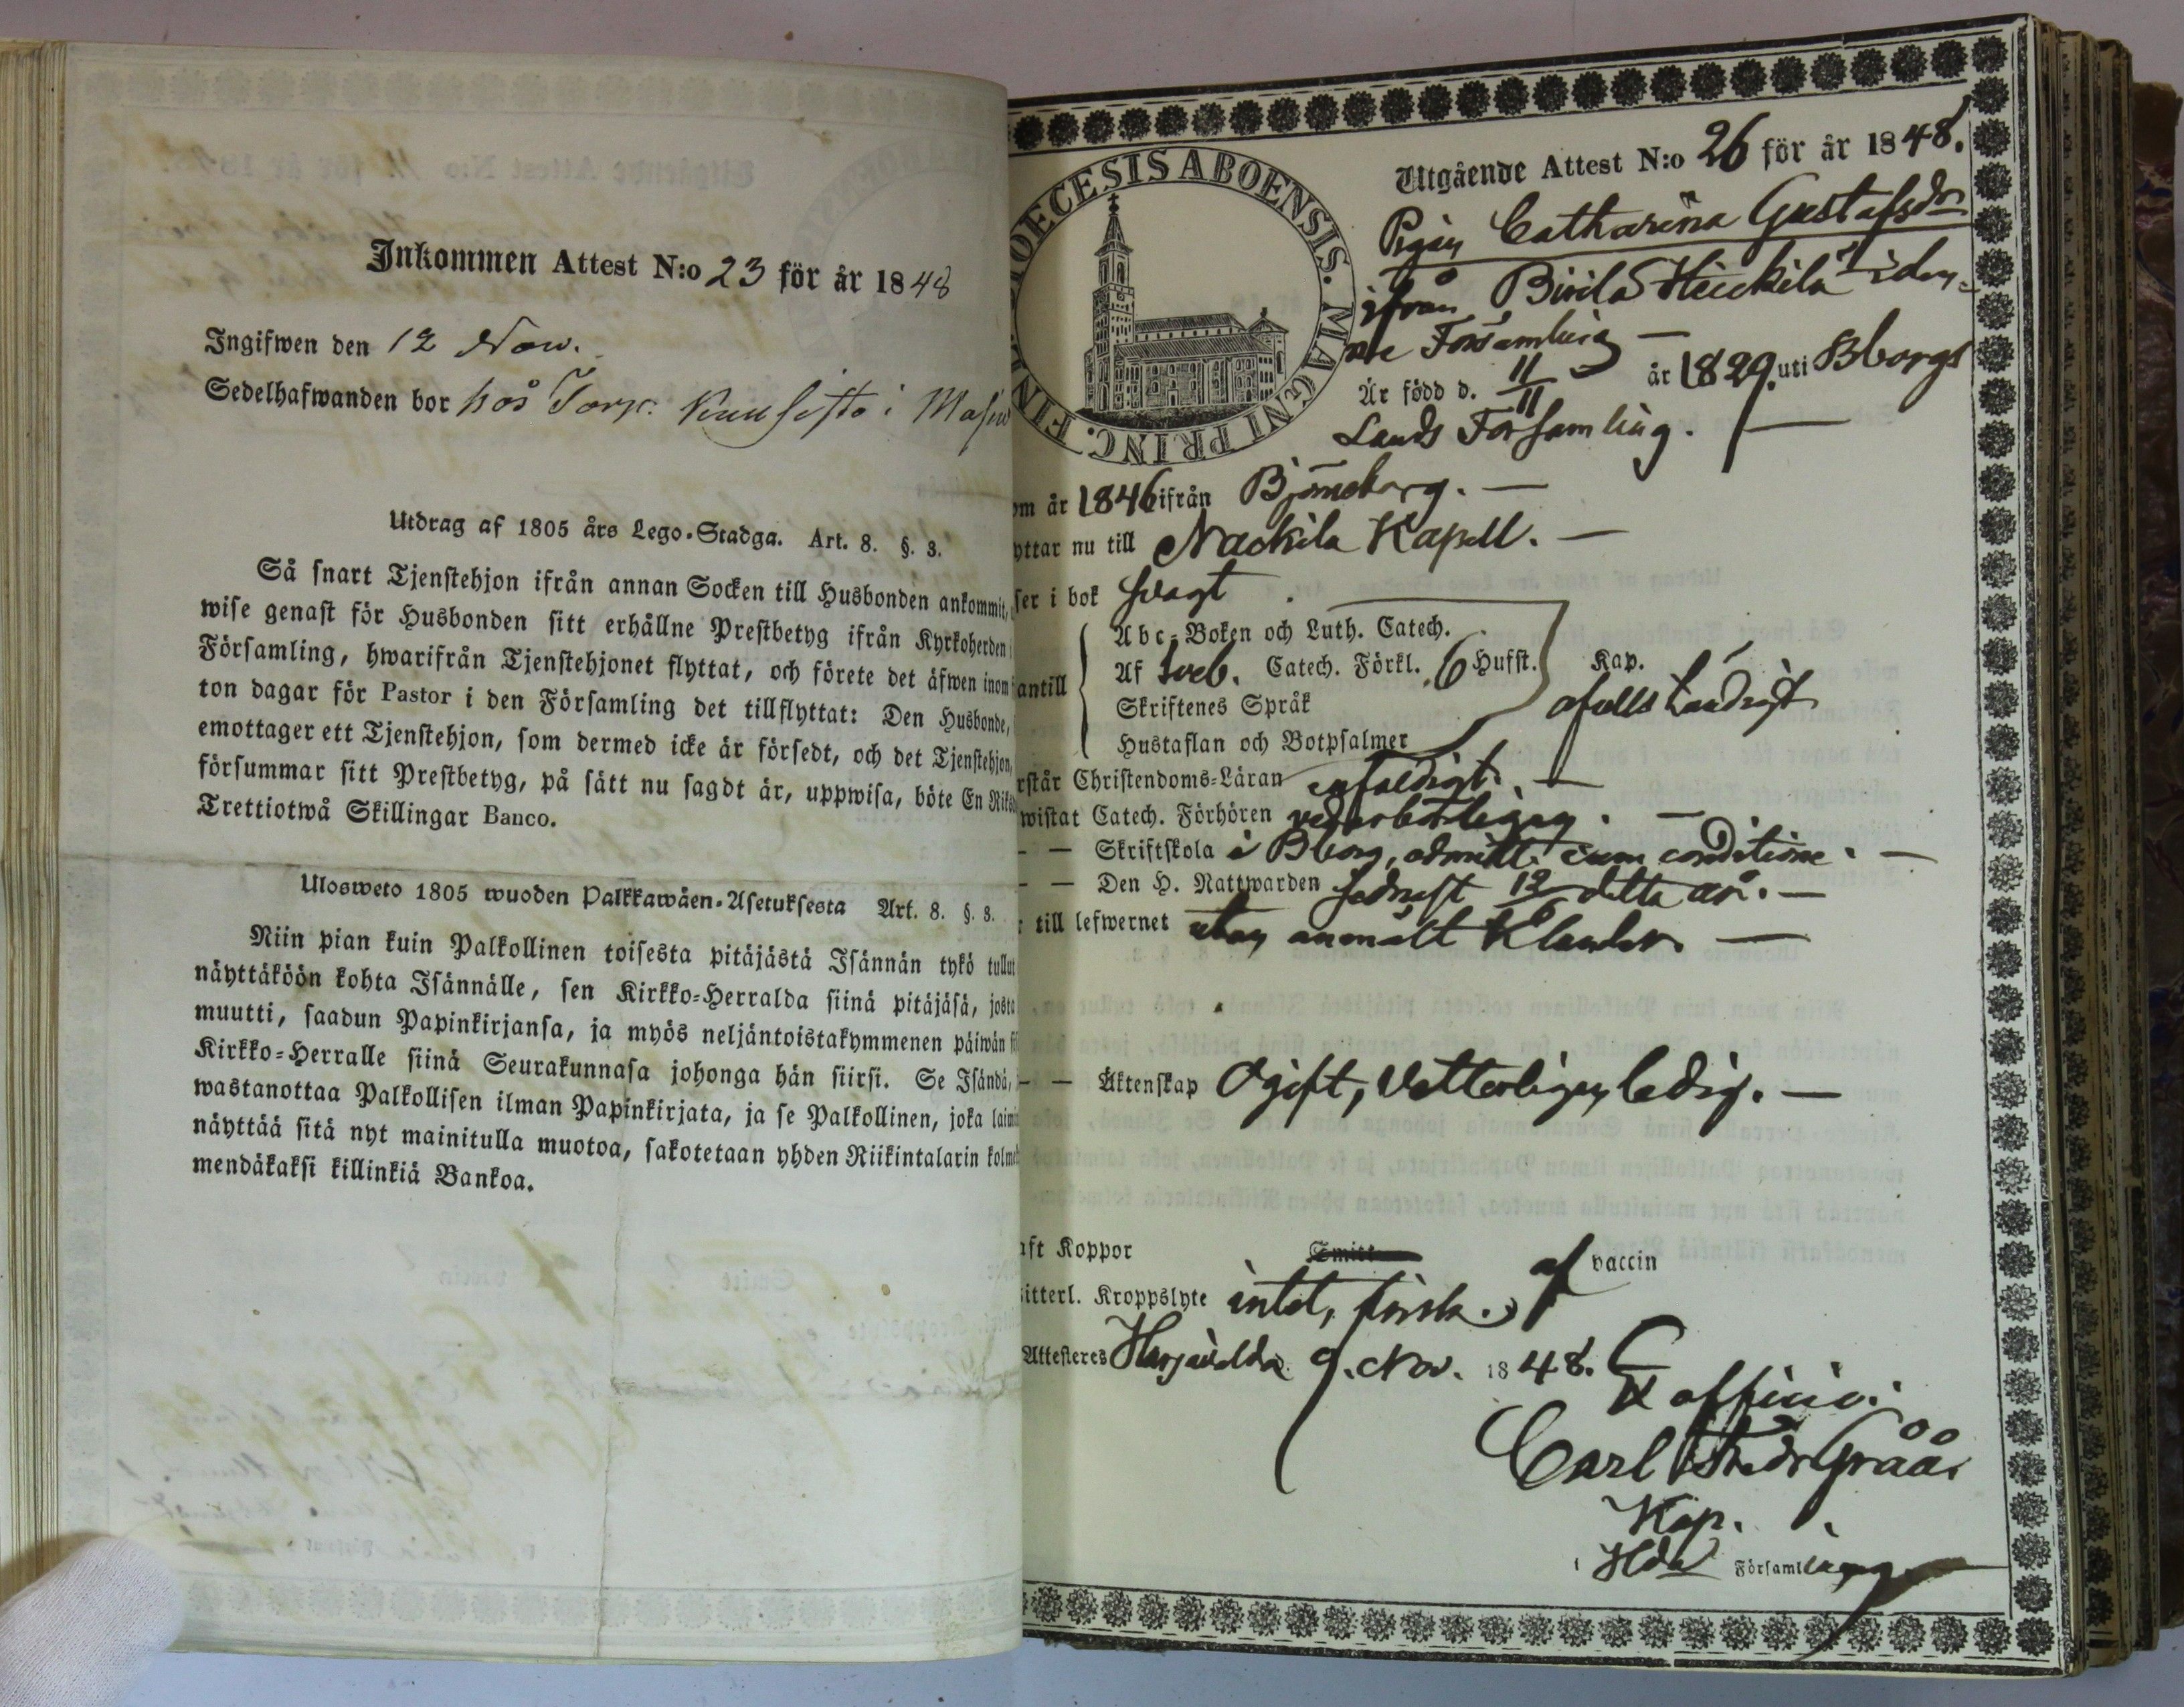 Inkommen Attest N:o 23 för år 1848
Ingifwen den 12 Nov.
Sedelhafwanden bor hos Torp. Kuusisto i
Utdrag af 1805 års Lego-Stadga. Art. 8. §. 3.
Så snart Tjenstehjon ifrån annan Socken till Husbonden ankommit,
wise genast för Husbonden sitt erhållne Prestbetyg ifrån Kyrkoherden
Församling, hwarifrån Tjenstehjonet flyttat, och förete det äfwen inom
ton dagar för Pastor i den Församling det tillflyttat: Den Husbonde,
emottager ett Tjenstehjon, som dermed icke är försedt, och det Tjenstehjon,
försummar sitt Prestbetyg, på sätt nu sagdt är, uppwisa, böte En Riks
Trettiotwå Skillingar Banco.
Ulosweto 1805 wuoden Palkkawäen-Asetuksesta Art. 8. §. 3.
Niin pian kuin Palkollinen toisesta pitäjästä Isännän tykö tullut
näyttäköön kohta Isännälle, sen Kirkko-Herralda siinä pitäjäsä, josta
muutti, saadun Papinkirjansa, ja myös neljäntoistakymmenen päiwän si
Kirkko-Herralle siinä Seurakunnasa johonga hän siirsi. Se Isändä,
wastanottaa Palkollisen ilman Papinkirjata, ja se Palkollinen, joka laimi
näyttää sitä nyt mainitulla muotoa, sakotetaan yhden Riikintalarin kolme
mendäkaksi killinkiä Bankoa.
DIOECESIS ABOENSIS. MAGNI PRINC. FINL.
Utgående Attest N:o 26 för år 1848.
Pigan Catharina Gustafsdr
ifrån Birila Heickilä i den
na Församling —
Är född d. 11/11 år 1829. uti Bborgs
Lands Församling. —
om år 1846 ifrån Björneborg. —
yttar nu till Nackila Kapell. —
ser i bok svagt.
antill
Abc-Boken och Luth. Catech.
Af Sveb. Catech. Förkl. 6 Hufst. Kap.
Skriftenes Språk ofullständigt
Hustaflan och Botpsalmer
rstår Christendoms-Läran enfaldigt. —
wistat Catech. Förhören vederbörligen. —
— — Skriftskola i Bborg, admitt. cum conditione. —
— — Den H. Nattwarden sednast detta år. —
r till lefwernet utan anmält klander. —
— — Äktenskap Ogift, Vetterligen ledig. —
aft Koppor Smitt af vaccin
itterl. Kroppslyte intet, frisk.
Attesteres Harjavalda 9. Nov. 1848.
Ex officio:
Carl Fredr Gråå.
Kap.
i Hda Församling